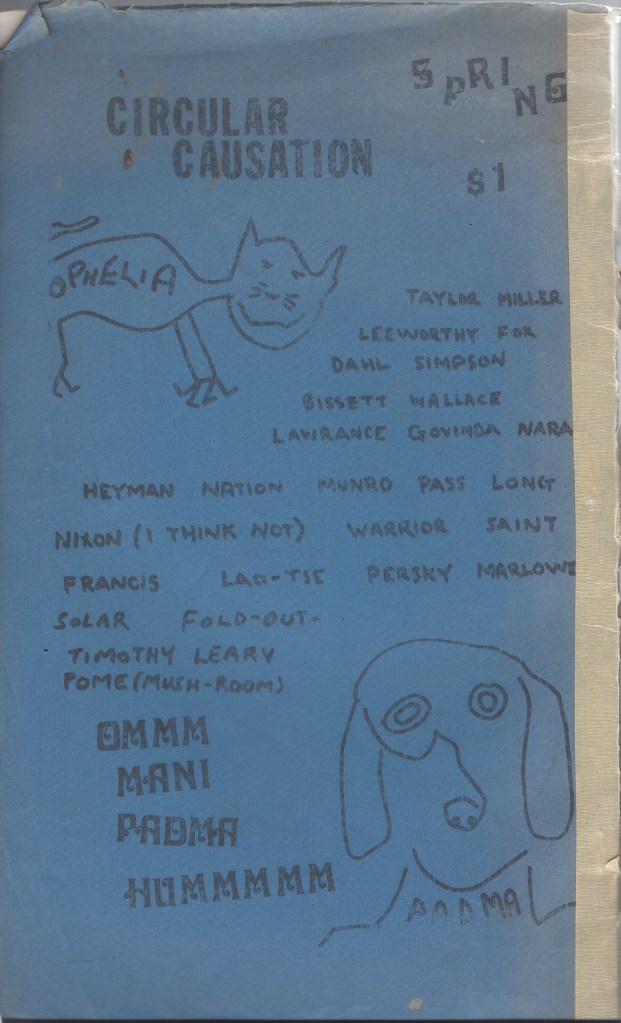 SPRING
CIRCULAR
CAUSATION
$1
OPHELIA
TAYLOR MILLER
LEEWORTHY FOR
DAHL SIMPSON
BISSETT WALLACE
LAWRANCE GOVINDA NARA
HEYMAN NATION MUNRO PASS LONG
NIXON (I THINK NOT) WARRIOR SAINT
FRANCIS LAO-TSE PERSKY MARLOWE
SOLAR FOLD-OUT-
TIMOTHY LEARY
POME (MUSH-ROOM)
OMMM
MANI
PADMA
HUMMMMMM
PADMA